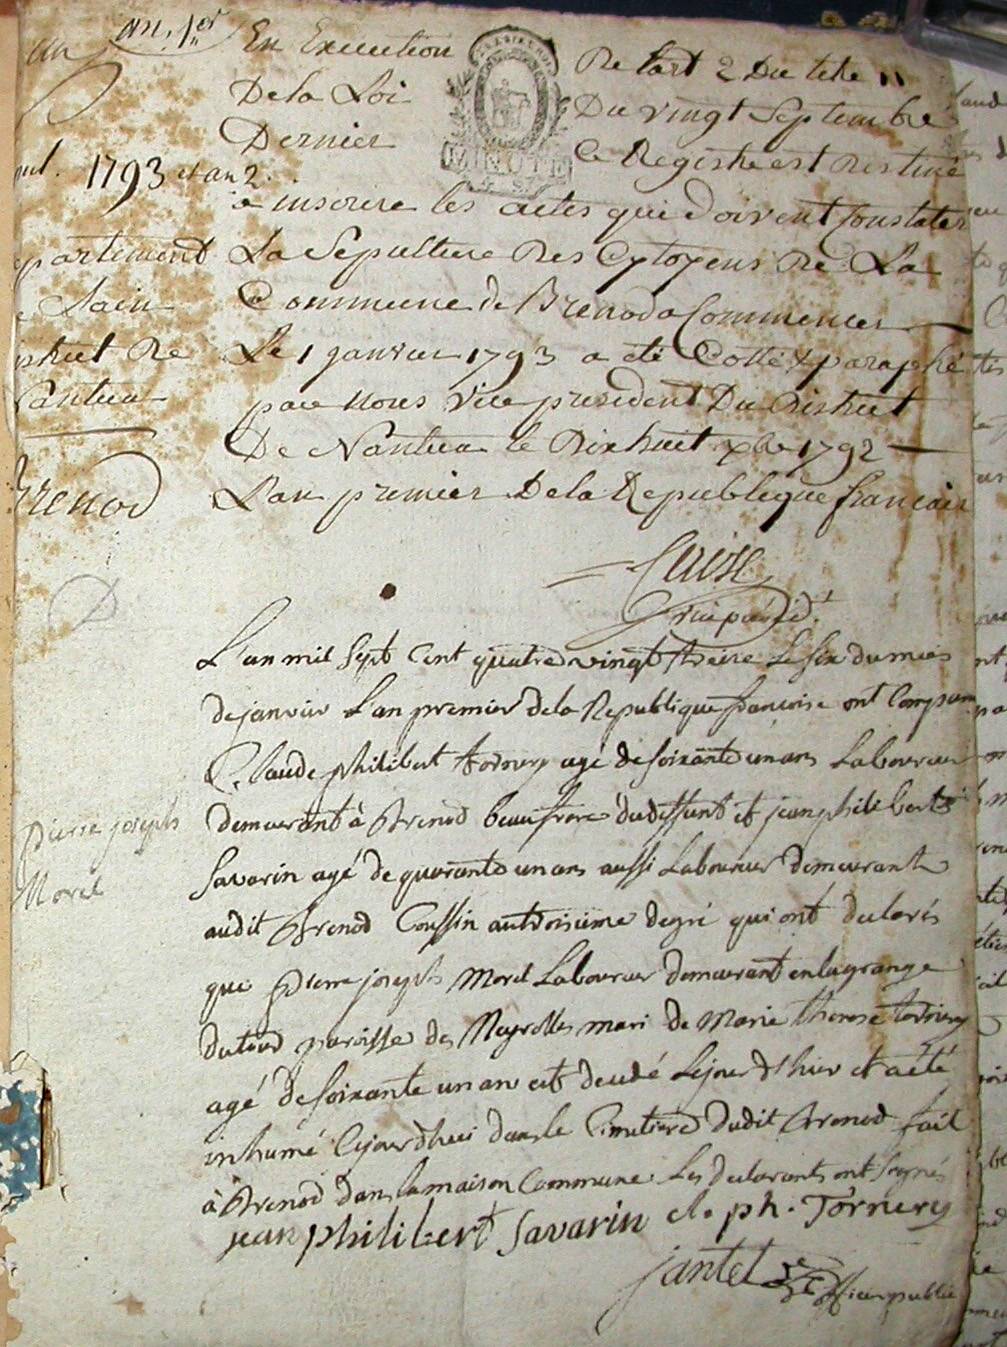 an 1er
En Execution De l'art 2 Du titre 11
De la Loi Du vingt Septembre
Dernier Ce Registre est Destiné
1793 et an 2.
MINUTE
a inscrire les actes qui doivent Constater
La Sepulture Des Cytoyens De La
Commune de Brenod a Commencer
Le 1 janvier 1793 a eté Cotté & paraphé
par nous Vice president Du District
De Nantua le Dix huit xbre 1792
L'an premier De la Republique francaise
partement
Lain
De
Nantua
Brenod
L'an mil sept Cent quatre vingt treize Le six du mois
de janvier L'an premier de la Republique francoise ont Comparu
Claude philibert tornery agé de soixante un ans Laboureur
demeurant à Brenod beaufrere du deffunt et jean philibert
Savarin agé de quarante un ans aussi Laboureur demeurant
audit Brenod Coussin au troisieme degré qui ont declarés
que pierre joseph Morel Laboureur demeurant en la grange
paroisse de Neyrolles mari de Marie therese tornery
agé de soixante un an est decedé Le jour d'hier et a été
inhumé Cejourdhui dans le Cimetiere dudit Brenod fait
à Brenod dans la maison Commune Les declarants ont signés
pierre joseph
Morel
jean philibert Savarin cl. ph. Tornery
jantet officier public